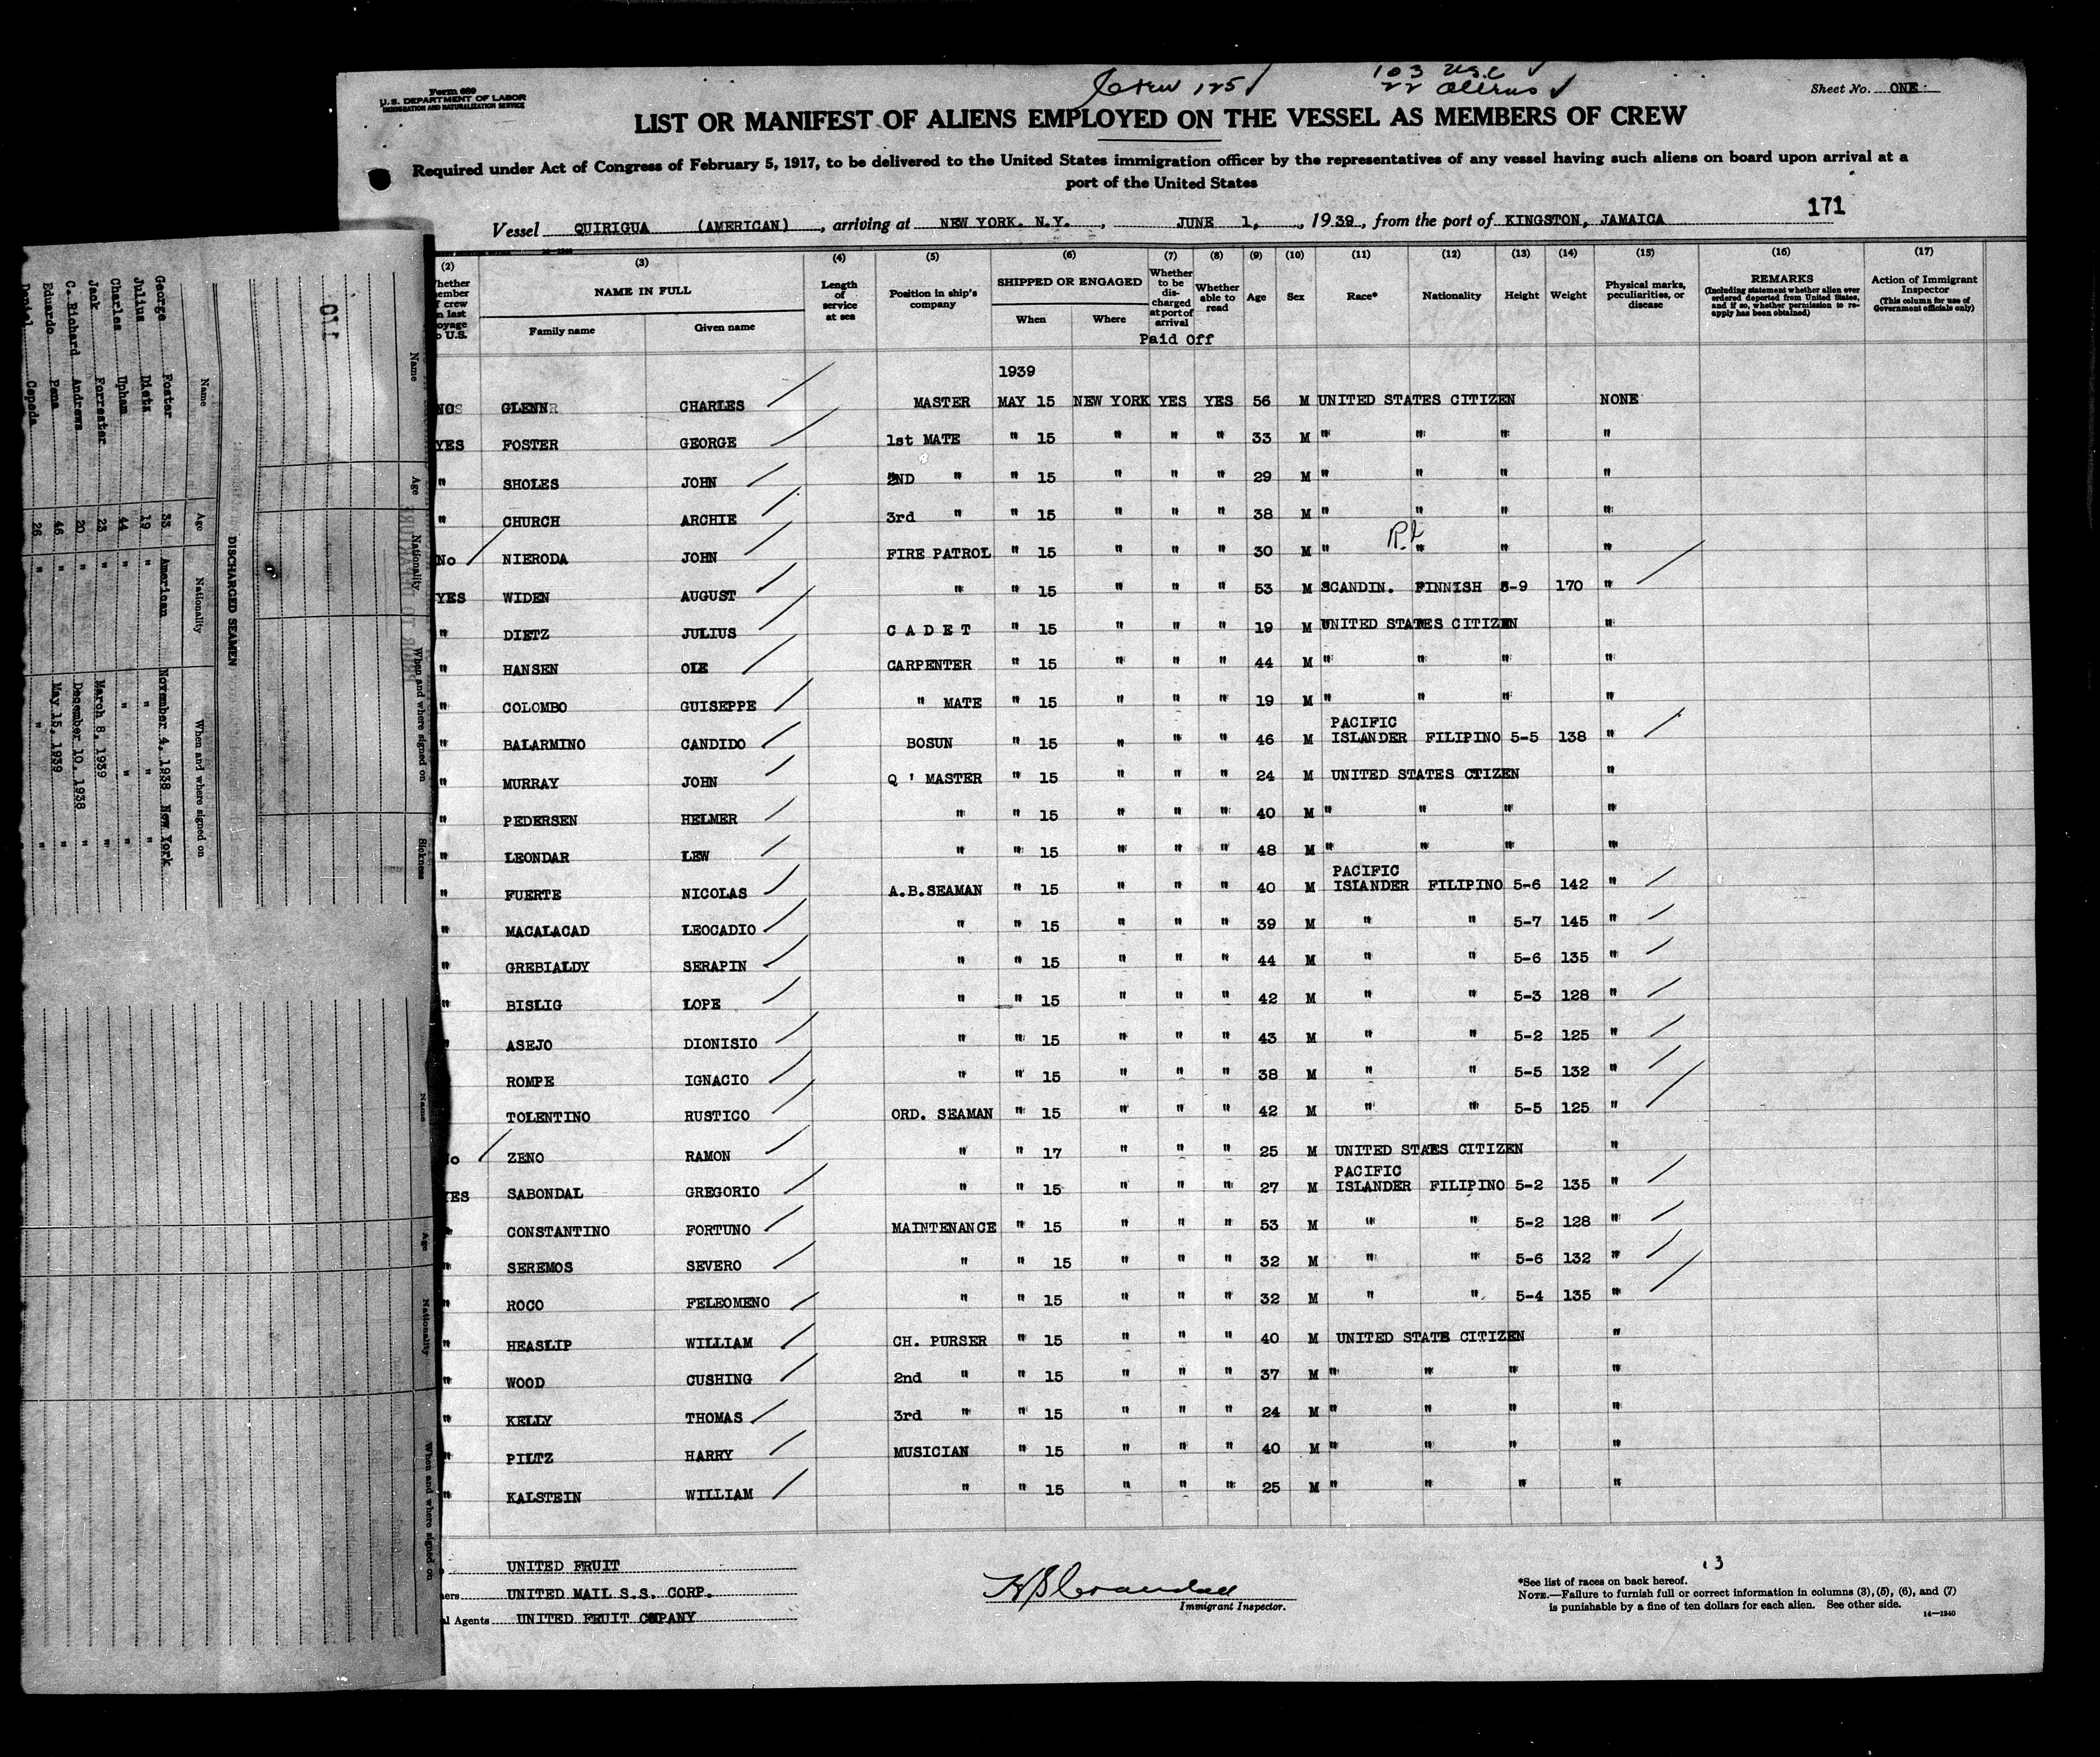 Form 680
U.S. DEPARTMENT OF LABOR
IMMIGRATION AND NATURALIZATION SERVICE
Crew 125
103 U.S.C
22 Aliens
Sheet No. ONE
LIST OR MANIFEST OF ALIENS EMPLOYED ON THE VESSEL AS MEMBERS OF CREW
Required under Act of Congress of February 5, 1917, to be delivered to the United States immigration officer by the representatives of any vessel having such aliens on board upon arrival at a
port of the United States
171
Vessel QUIRIGUA (AMERICAN), arriving at NEW YORK. N.Y., JUNE 1, 1939, from the port of KINGSTON, JAMAICA
(2) (3) (4) (5) (6) (7) (8) (9) (10) (11) (12) (13) (14) (15) (16) (17)
NAME IN FULL
Family name Given name
Length of service at sea
Position in ship's company
SHIPPED OR ENGAGED
When Where
Whether to be discharged at port of arrival
Whether able to read
Age Sex Race* Nationality Height Weight
Physical marks, peculiarities, or disease
REMARKS
(Including statement whether alien ever ordered deported from United States, and if so, whether permission to reapply has been obtained)
Action of Immigrant Inspector
(This column for use of Government officials only)
Paid Off
1939
NO GLENN CHARLES MASTER MAY 15 NEW YORK YES YES 56 M UNITED STATES CITIZEN NONE
YES FOSTER GEORGE 1st MATE " 15 " " " 33 M " " " "
" SHOLES JOHN 2ND " " 15 " " " 29 M " " " "
" CHURCH ARCHIE 3rd " " 15 " " " 38 M " " " "
No NIERODA JOHN FIRE PATROL " 15 " " " 30 M " " " "
YES WIDEN AUGUST " " 15 " " " 53 M SCANDIN. FINNISH 5-9 170 "
" DIETZ JULIUS CADET " 15 " " " 19 M UNITED STATES CITIZEN "
" HANSEN OLE CARPENTER " 15 " " " 44 M " " " "
" COLOMBO GUISEPPE " MATE " 15 " " " 19 M " " " "
" BALARMINO CANDIDO BOSUN " 15 " " " 46 M PACIFIC ISLANDER FILIPINO 5-5 138 "
" MURRAY JOHN Q ' MASTER " 15 " " " 24 M UNITED STATES CTIZEN "
" PEDERSEN HELMER " " 15 " " " 40 M " " " "
" LEONDAR LEW " " 15 " " " 48 M " " " "
" FUERTE NICOLAS A.B.SEAMAN " 15 " " " 40 M PACIFIC ISLANDER FILIPINO 5-6 142 "
" MACALACAD LEOCADIO " " 15 " " " 39 M " " 5-7 145 "
" GREBIALDY SERAPIN " " 15 " " " 44 M " " 5-6 135 "
" BISLIG LOPE " " 15 " " " 42 M " " 5-3 128 "
" ASEJO DIONISIO " " 15 " " " 43 M " " 5-2 125 "
ROMPE IGNACIO " " 15 " " " 38 M " " 5-5 132 "
TOLENTINO RUSTICO ORD. SEAMAN " 15 " " " 42 M " " 5-5 125 "
No ZENO RAMON " " 17 " " " 25 M UNITED STATES CITIZEN "
YES SABONDAL GREGORIO " " 15 " " " 27 M PACIFIC ISLANDER FILIPINO 5-2 135 "
" CONSTANTINO FORTUNO MAINTENANCE " 15 " " " 53 M " " 5-2 128 "
" SEREMOS SEVERO " " 15 " " " 32 M " " 5-6 132 "
" ROCO FELEOMENO " " 15 " " " 32 M " " 5-4 135 "
" HEASLIP WILLIAM CH. PURSER " 15 " " " 40 M UNITED STATE CITIZEN "
" WOOD CUSHING 2nd " " 15 " " " 37 M " " " "
" KELLY THOMAS 3rd " " 15 " " " 24 M " " " "
" PILTZ HARRY MUSICIAN " 15 " " " 40 M " " " "
" KALSTEIN WILLIAM " " 15 " " " 25 M " " " "
UNITED FRUIT
UNITED MAIL S.S. CORP.
Agents UNITED FRUIT COMPANY
Immigrant Inspector.
*See list of races on back hereof.
NOTE.—Failure to furnish full or correct information in columns (3), (5), (6), and (7)
is punishable by a fine of ten dollars for each alien. See other side.
14—1240
DISCHARGED SEAMEN
Name Age Nationality When and where signed on
George Foster 33 American November 4, 1938 New York
Julius Dietz 19 " " "
Charles Upham 44 " " " "
Jack Forrester 23 " March 8, 1939 "
C. Richard Andrews 20 " December 10, 1938 "
Eduardo Pena 46 " May 15, 1939 "
Daniel Cepeda 26 " " "
Name Age Nationality When and where signed on Sickness
Name Age Nationality When and where signed on